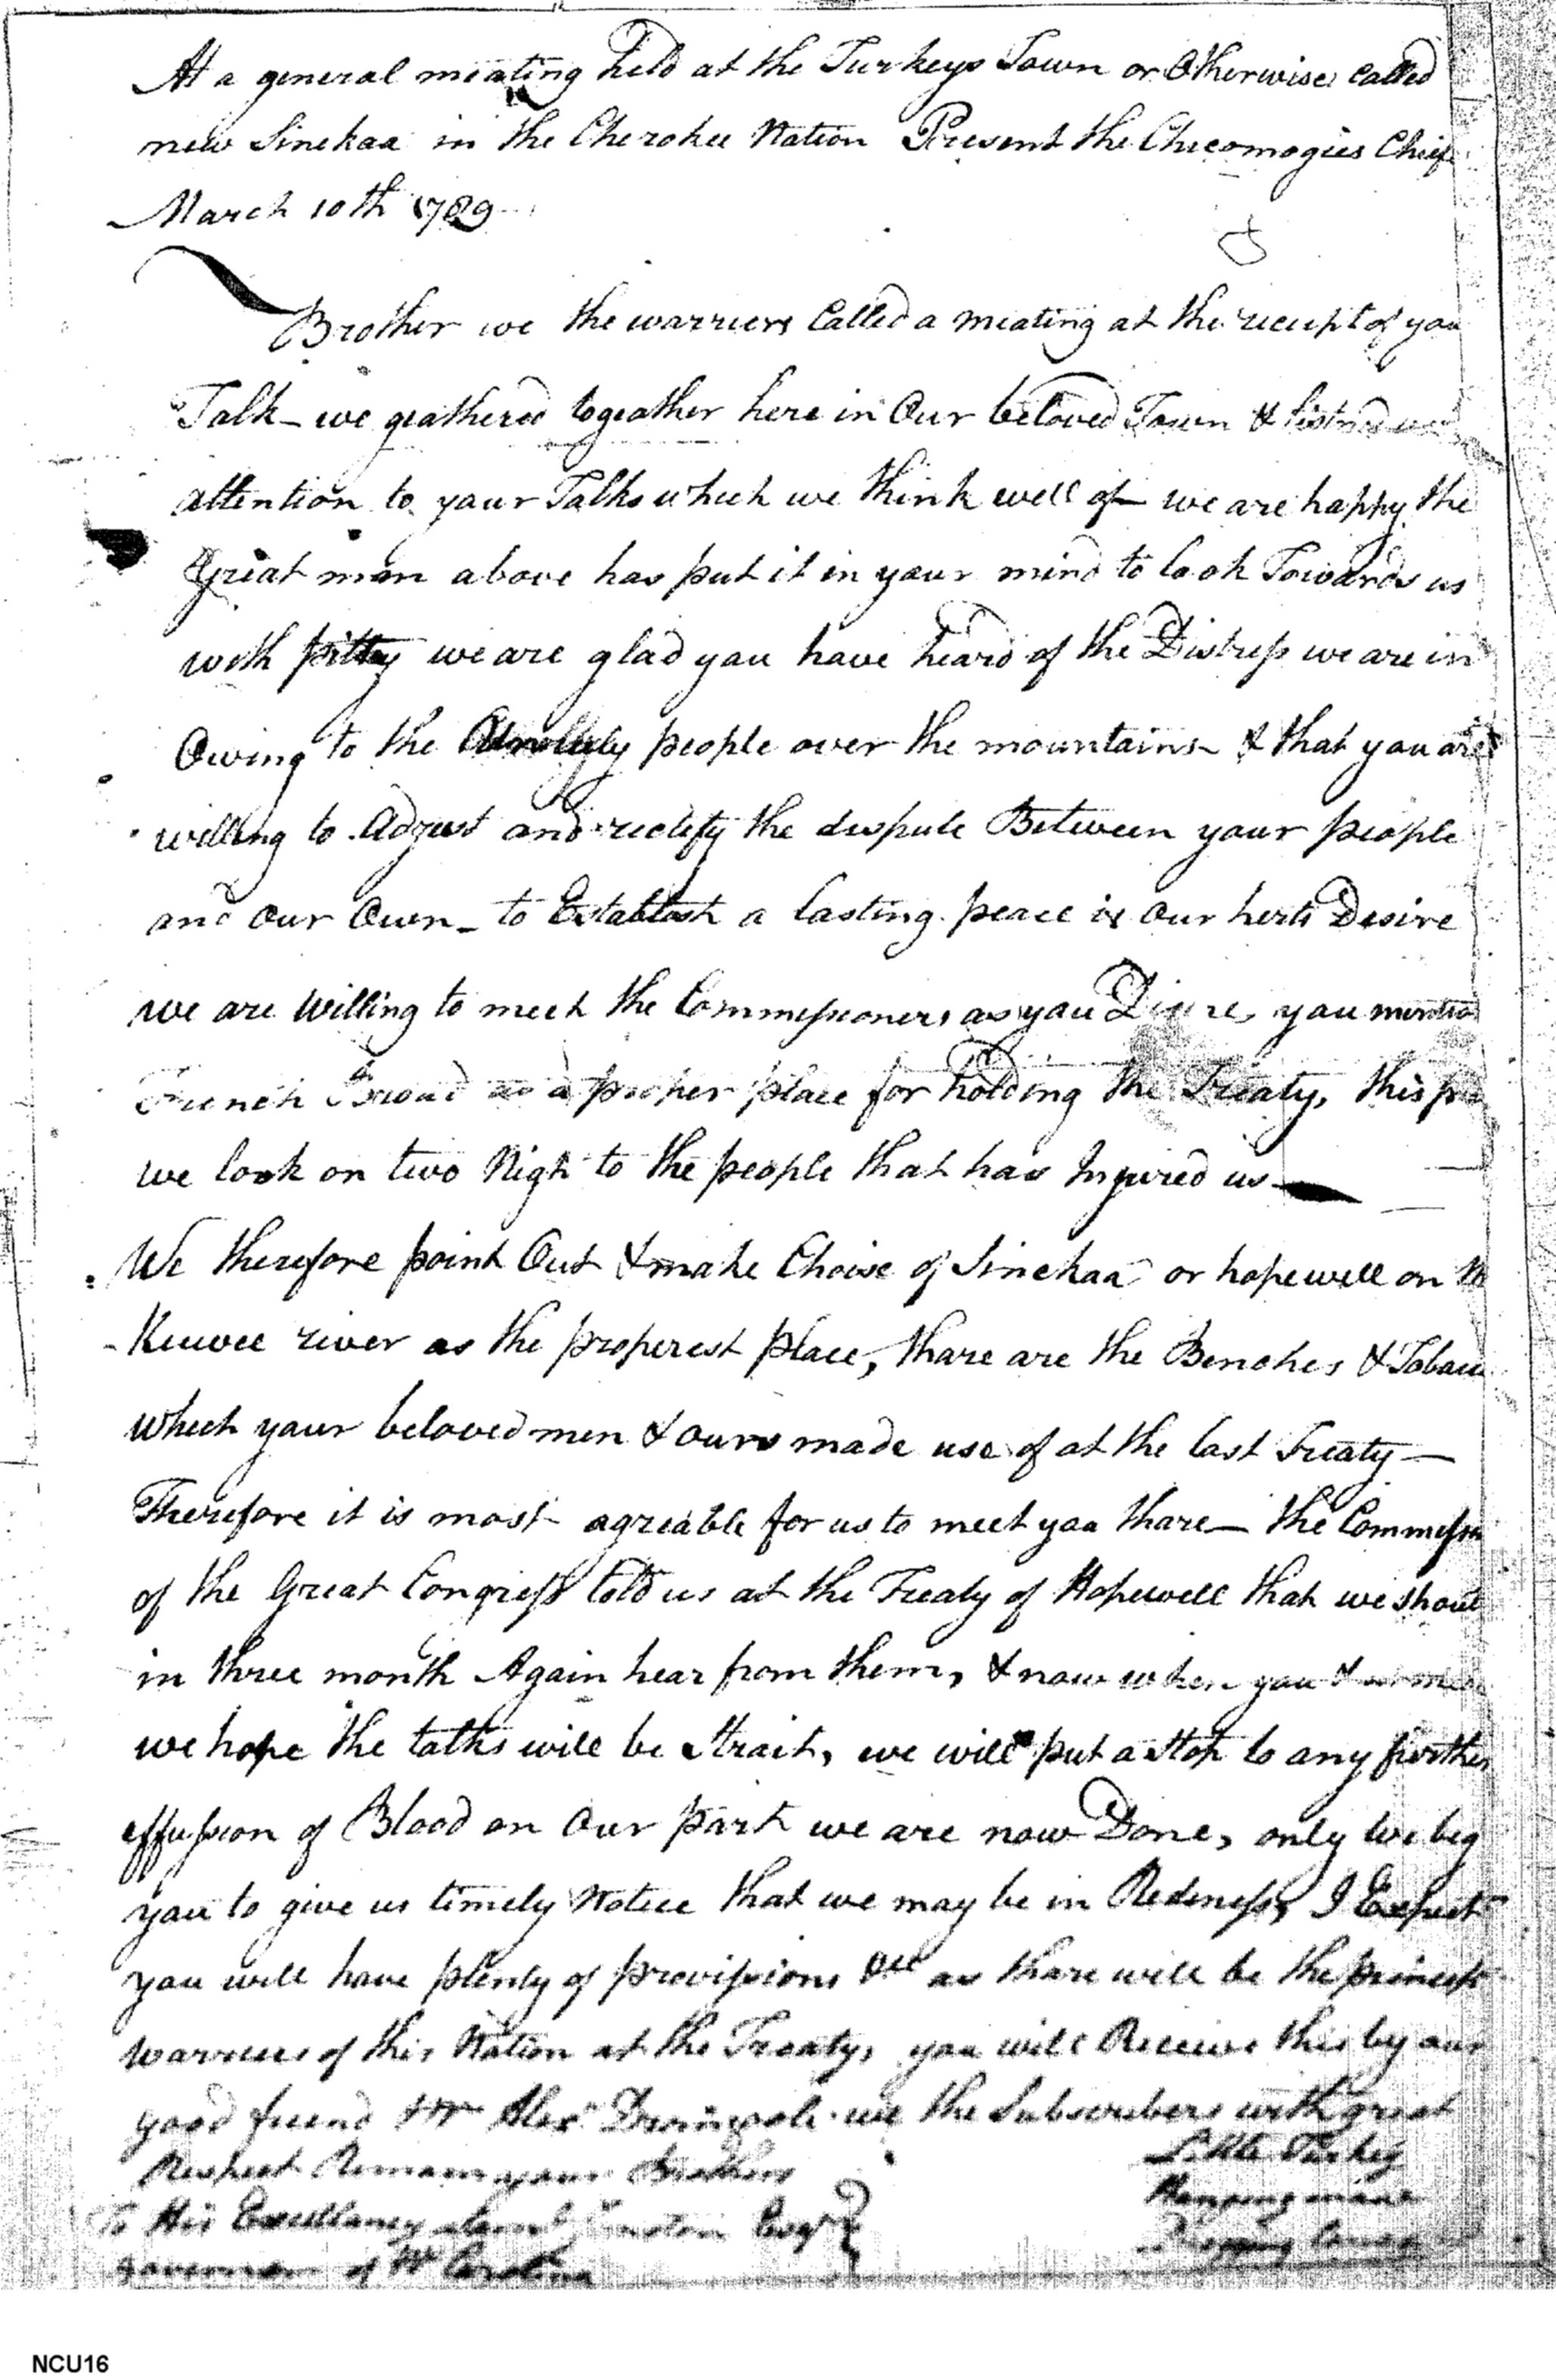 At a general meating held at the Turkeys Town or Otherwise Called
new Sinekaa in the Cherokee Nation Present the Checomogies Chief
March 10th 1789
Brother we the warriers Called a meating at the receipt of you
Talk - we geathered togeather here in Our beloved Town &
attention to your Talks which we think well of - we are happy the
Great man above has put it in your mind to look Towards us
with pittey we are glad you have heard of the Distress we are in
Owing to the people over the mountains & that you are
willing to Adjust and rectify the dispute Between your people
and Our Own - to Establish a lasting peace is Our herts Desire
we are Willing to meet the Commissioners as you Disire, you mention
French Broad as a proper place for holding the Treaty, this
we look on two Nigh to the people that has Injured us
We therefore point Out & make Choise of Sinekaa or hopewell on th
Keuwee river as the properest place, thare are the Benches &
which your beloved men & ours made use of at the last Treaty -
Therefore it is most agreable for us to meet you thare - the
of the Great Congress told us at the Treaty of Hopewell that we shoul
in three month Again hear from them, & now when you &
we hope the talks will be strait, we will put a stop to any further
effusion of Blood on Our part we are now Done, only we beg
you to give us timely Notice that we may be in Rediness, I Expect
you will have plenty of provissions &cc as thare will be the
warriers of this Nation at the Treaty, you will Receive this by our
good friend Mr Alexr. we the Subscribers with great
Respect Remain your Brothers
Little Turkey
Hanging
Dragging
To His Excellancy Saml Esqr
Governor of Nh Carolina
NCU16